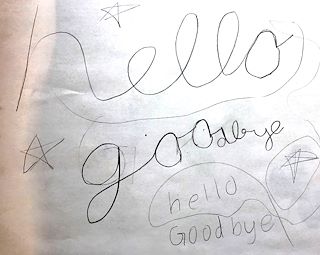 hello
goodbye
hello
Goodbye